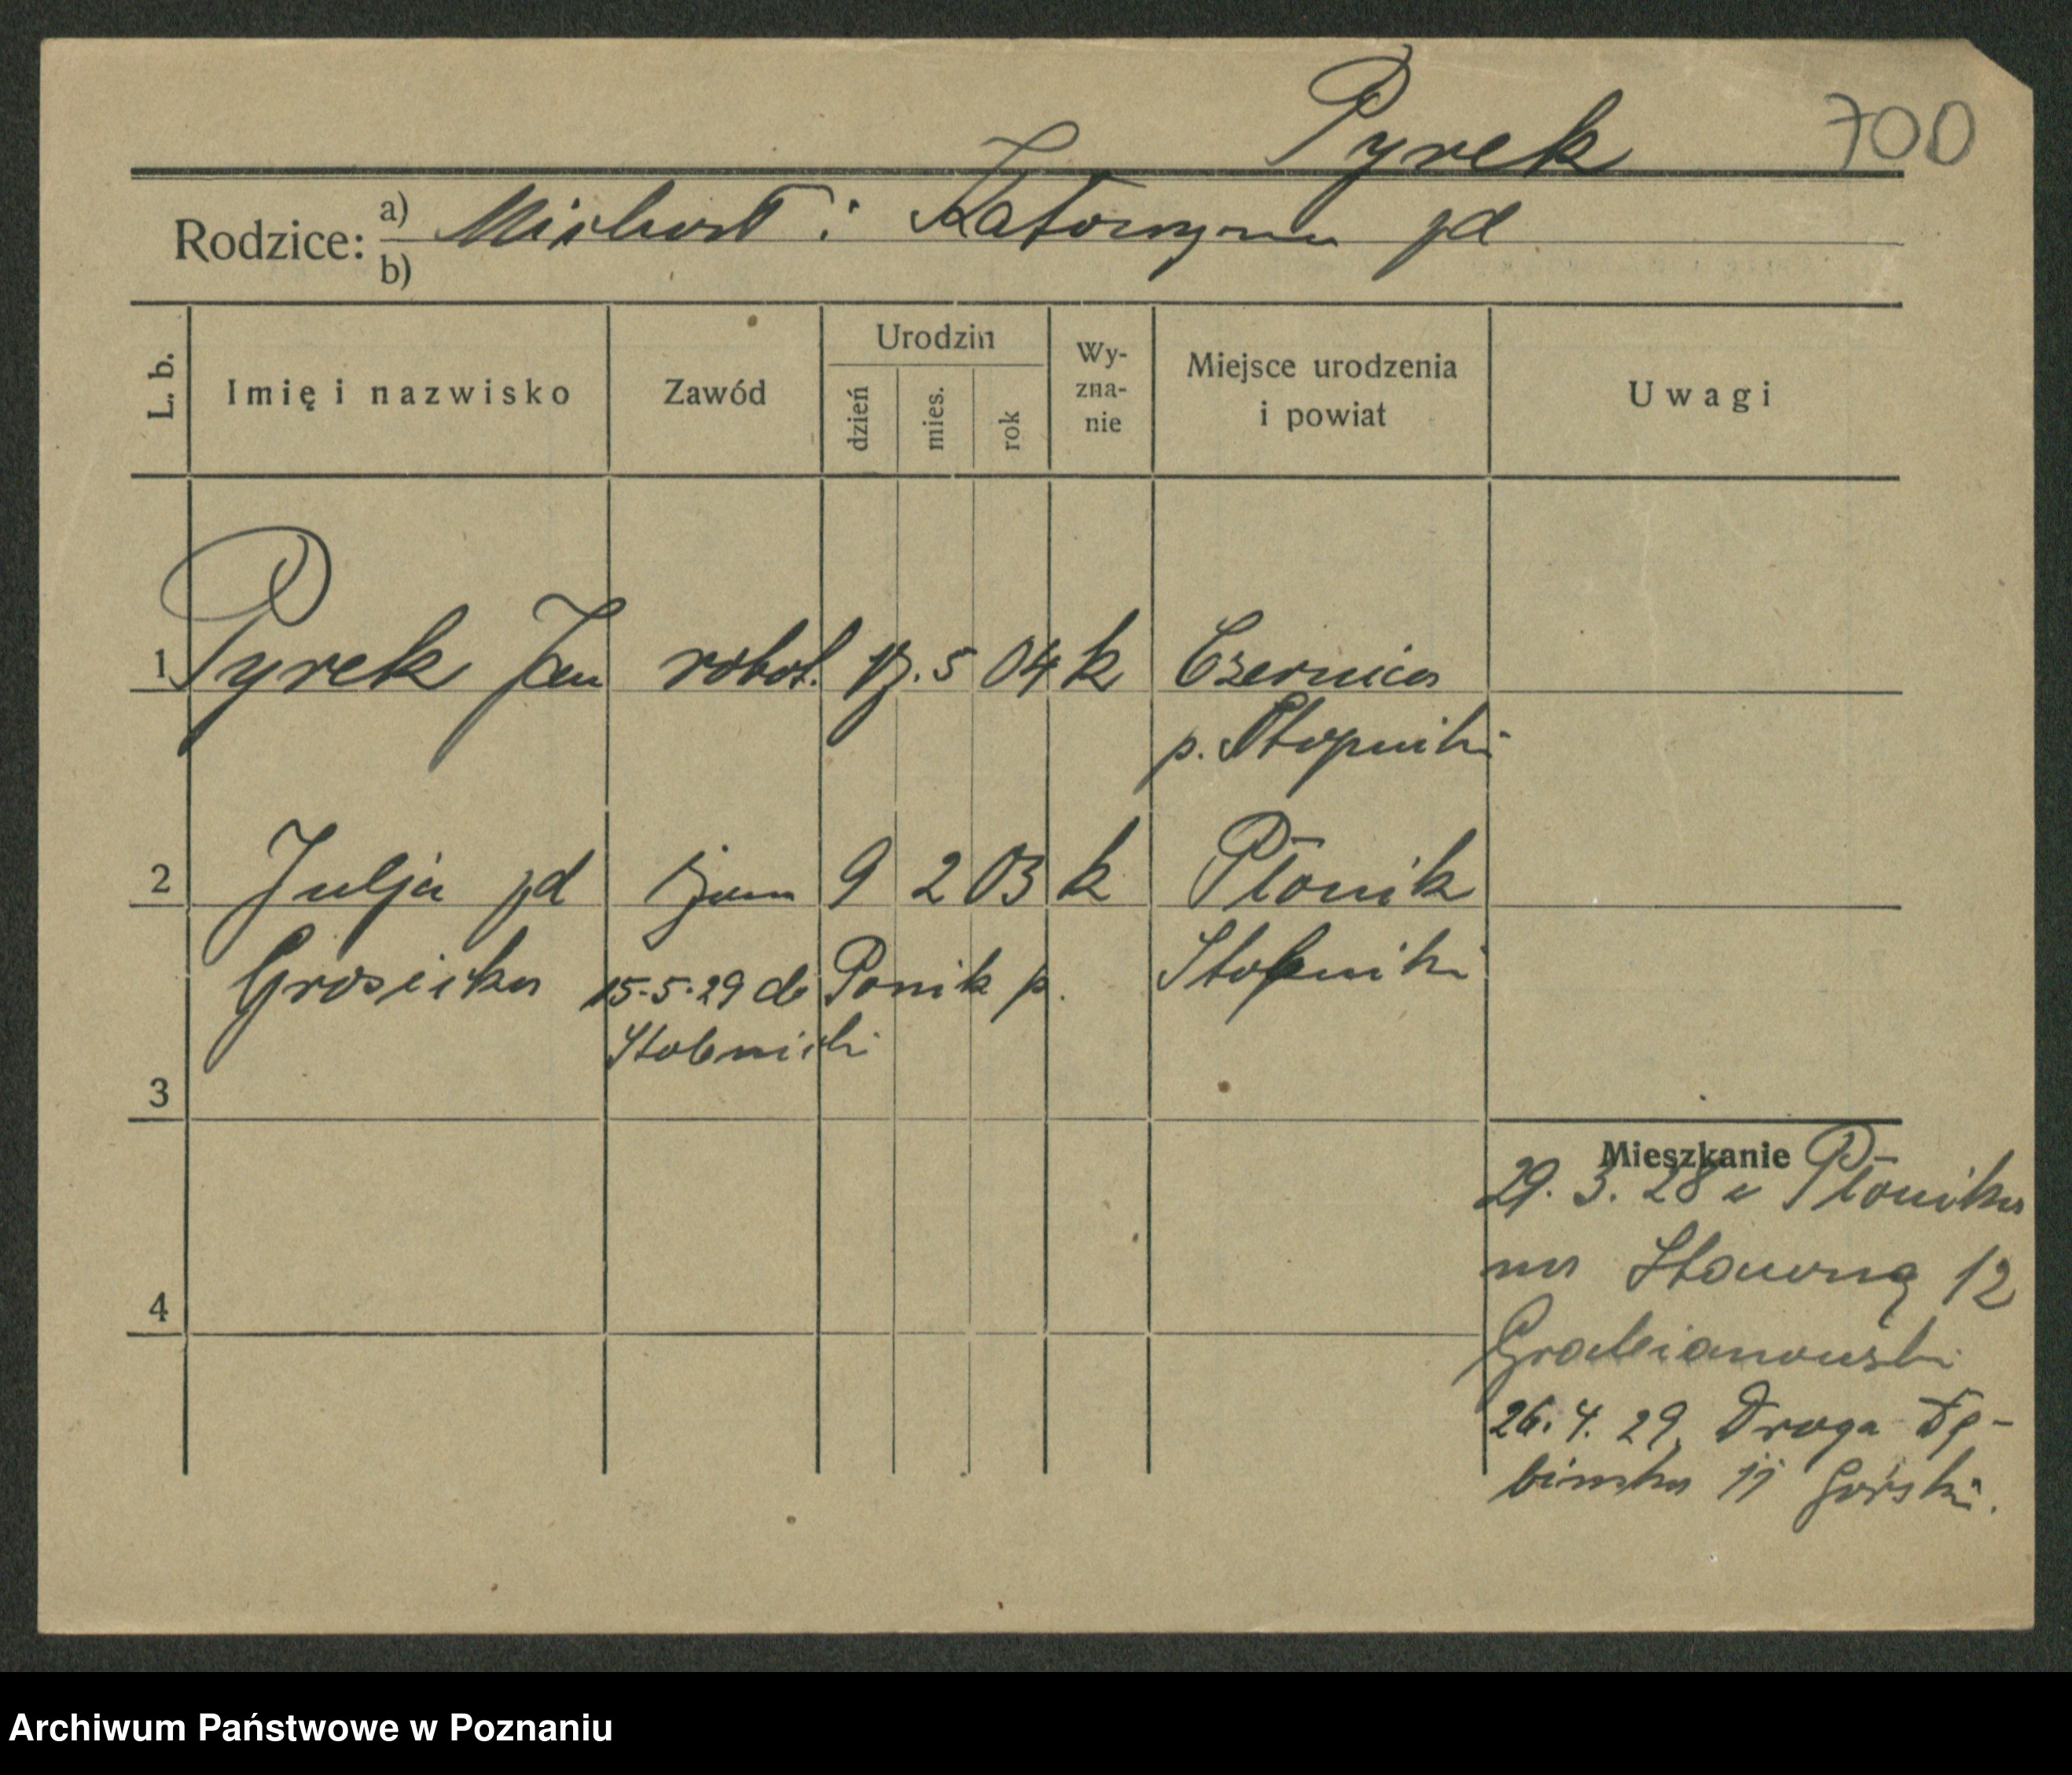 Pyrek 700
Rodzice: a) Michał i Katarzyna zd
b)
L. b. Imię i nazwisko Zawód Urodzin dzień mies. rok Wy-zna-nie Miejsce urodzenia i powiat Uwagi
1 Pyrek Jan robot. 5 04 k Czernica
p. Stopnicki
2 Julja zd żona 9 2 03 k Płonik
Grosicka Stobnicki
15.5.29 do Ponik p.
Stobnicki
3
4
Mieszkanie
29. 3. 28 z Płonika
na Stawną 12
Grabianowski
26. 4. 29 Droga Dę-
bińska 11 Górski.
Archiwum Państwowe w Poznaniu